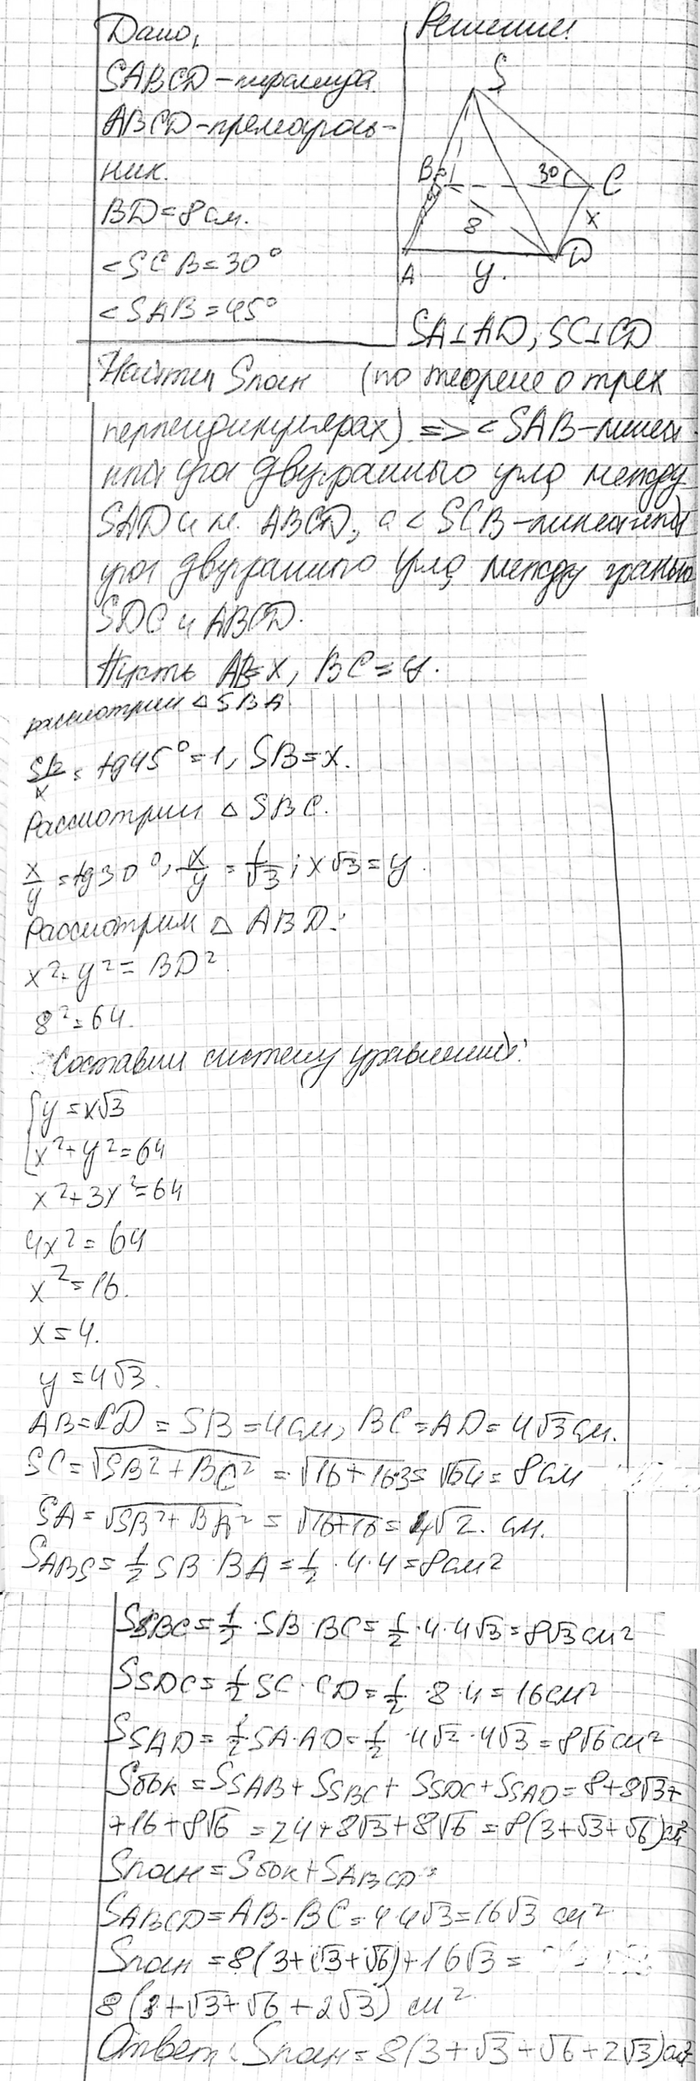 Дано,
SABCD – пирамида
ABCD – прямоуголь-
ник.
BD = 8 см.
<SCB = 30°
<SAB = 45°
Найти Sполн
Решение:
S
B
30°
C
8
x
A
y.
D
SA⊥AD, SC⊥CD
(по теореме о трех
перпендикулярах) => <SAB – линей-
ный угол двугранного угла между
SAD и м. ABCD, а <SCB – линейный
угол двугранного угла между гранью
SDC и ABCD.
Пусть AB = x, BC = y.
рассмотрим △SBA
SB/x = tg45° = 1, SB = x.
Рассмотрим △ SBC.
x/y = tg30°, x/y = 1/√3; x√3 = y.
Рассмотрим △ ABD:
x² + y² = BD²
8² = 64.
Составим систему уравнений:
{y = x√3
{x² + y² = 64
x² + 3x² = 64
4x² = 64
x² = 16.
x = 4.
y = 4√3.
AB = CD = SB = 4 см, BC = AD = 4√3 см.
SC = √SB² + BC² = √16 + 16·3 = √64 = 8 см
SA = √SB² + BA² = √16+16 = 4√2. см.
SABS = 1/2 SB · BA = 1/2 · 4 · 4 = 8 см²
SSBC = 1/2 · SB · BC = 1/2 · 4 · 4√3 = 8√3 см²
SSDC = 1/2 SC · CD = 1/2 · 8 · 4 = 16 см²
SSAD = 1/2 SA · AD = 1/2 · 4√2 · 4√3 = 8√6 см²
Sбок = SSAB + SSBC + SSDC + SSAD = 8 + 8√3 +
+16 + 8√6 = 24 + 8√3 + 8√6 = 8(3+√3+√6) см²
Sполн = Sбок + SABCD =
SABCD = AB · BC = 4·4√3 = 16√3 см²
Sполн = 8(3+√3+√6) + 16√3 =
8(3+√3+√6+2√3) см²
Ответ: Sполн = 8(3+√3+√6+2√3) см²